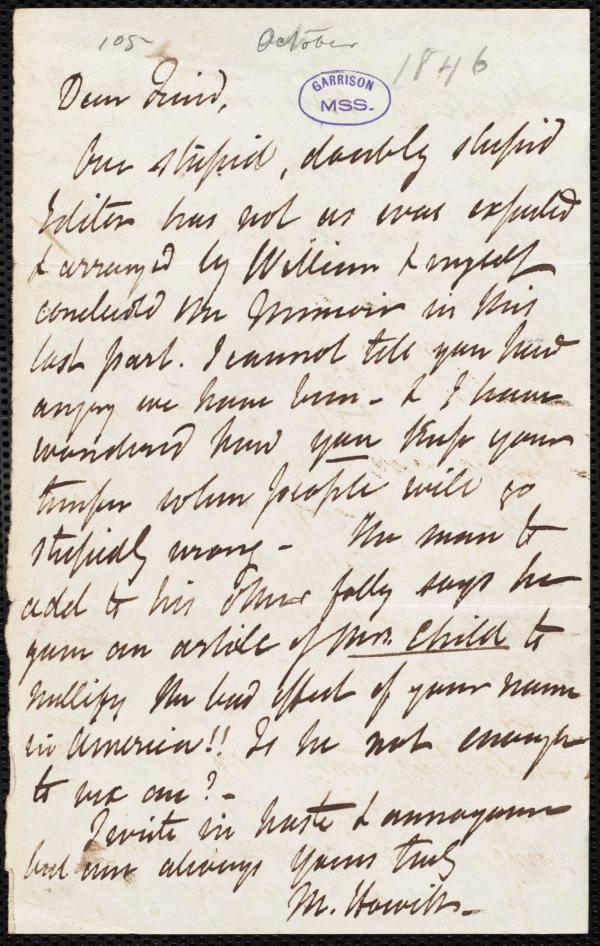 105
October
1846
GARRISON
MSS.
Dear Friend,
Our stupid, doubly stupid
Editor has not as was expected
& arranged by William & myself
concluded the Memoir in this
last part. I cannot tell you how
angry we have been - & I have
wondered how you keep your
temper when people will go
stupidly wrong - The man to
add to his other folly says he
gave an article of Mrs. Child to
nullify the bad effect of your name
in America!! Is he not enough
to vex one? -
I write in haste & annoyance
but am always yours truly
M. Howitt -